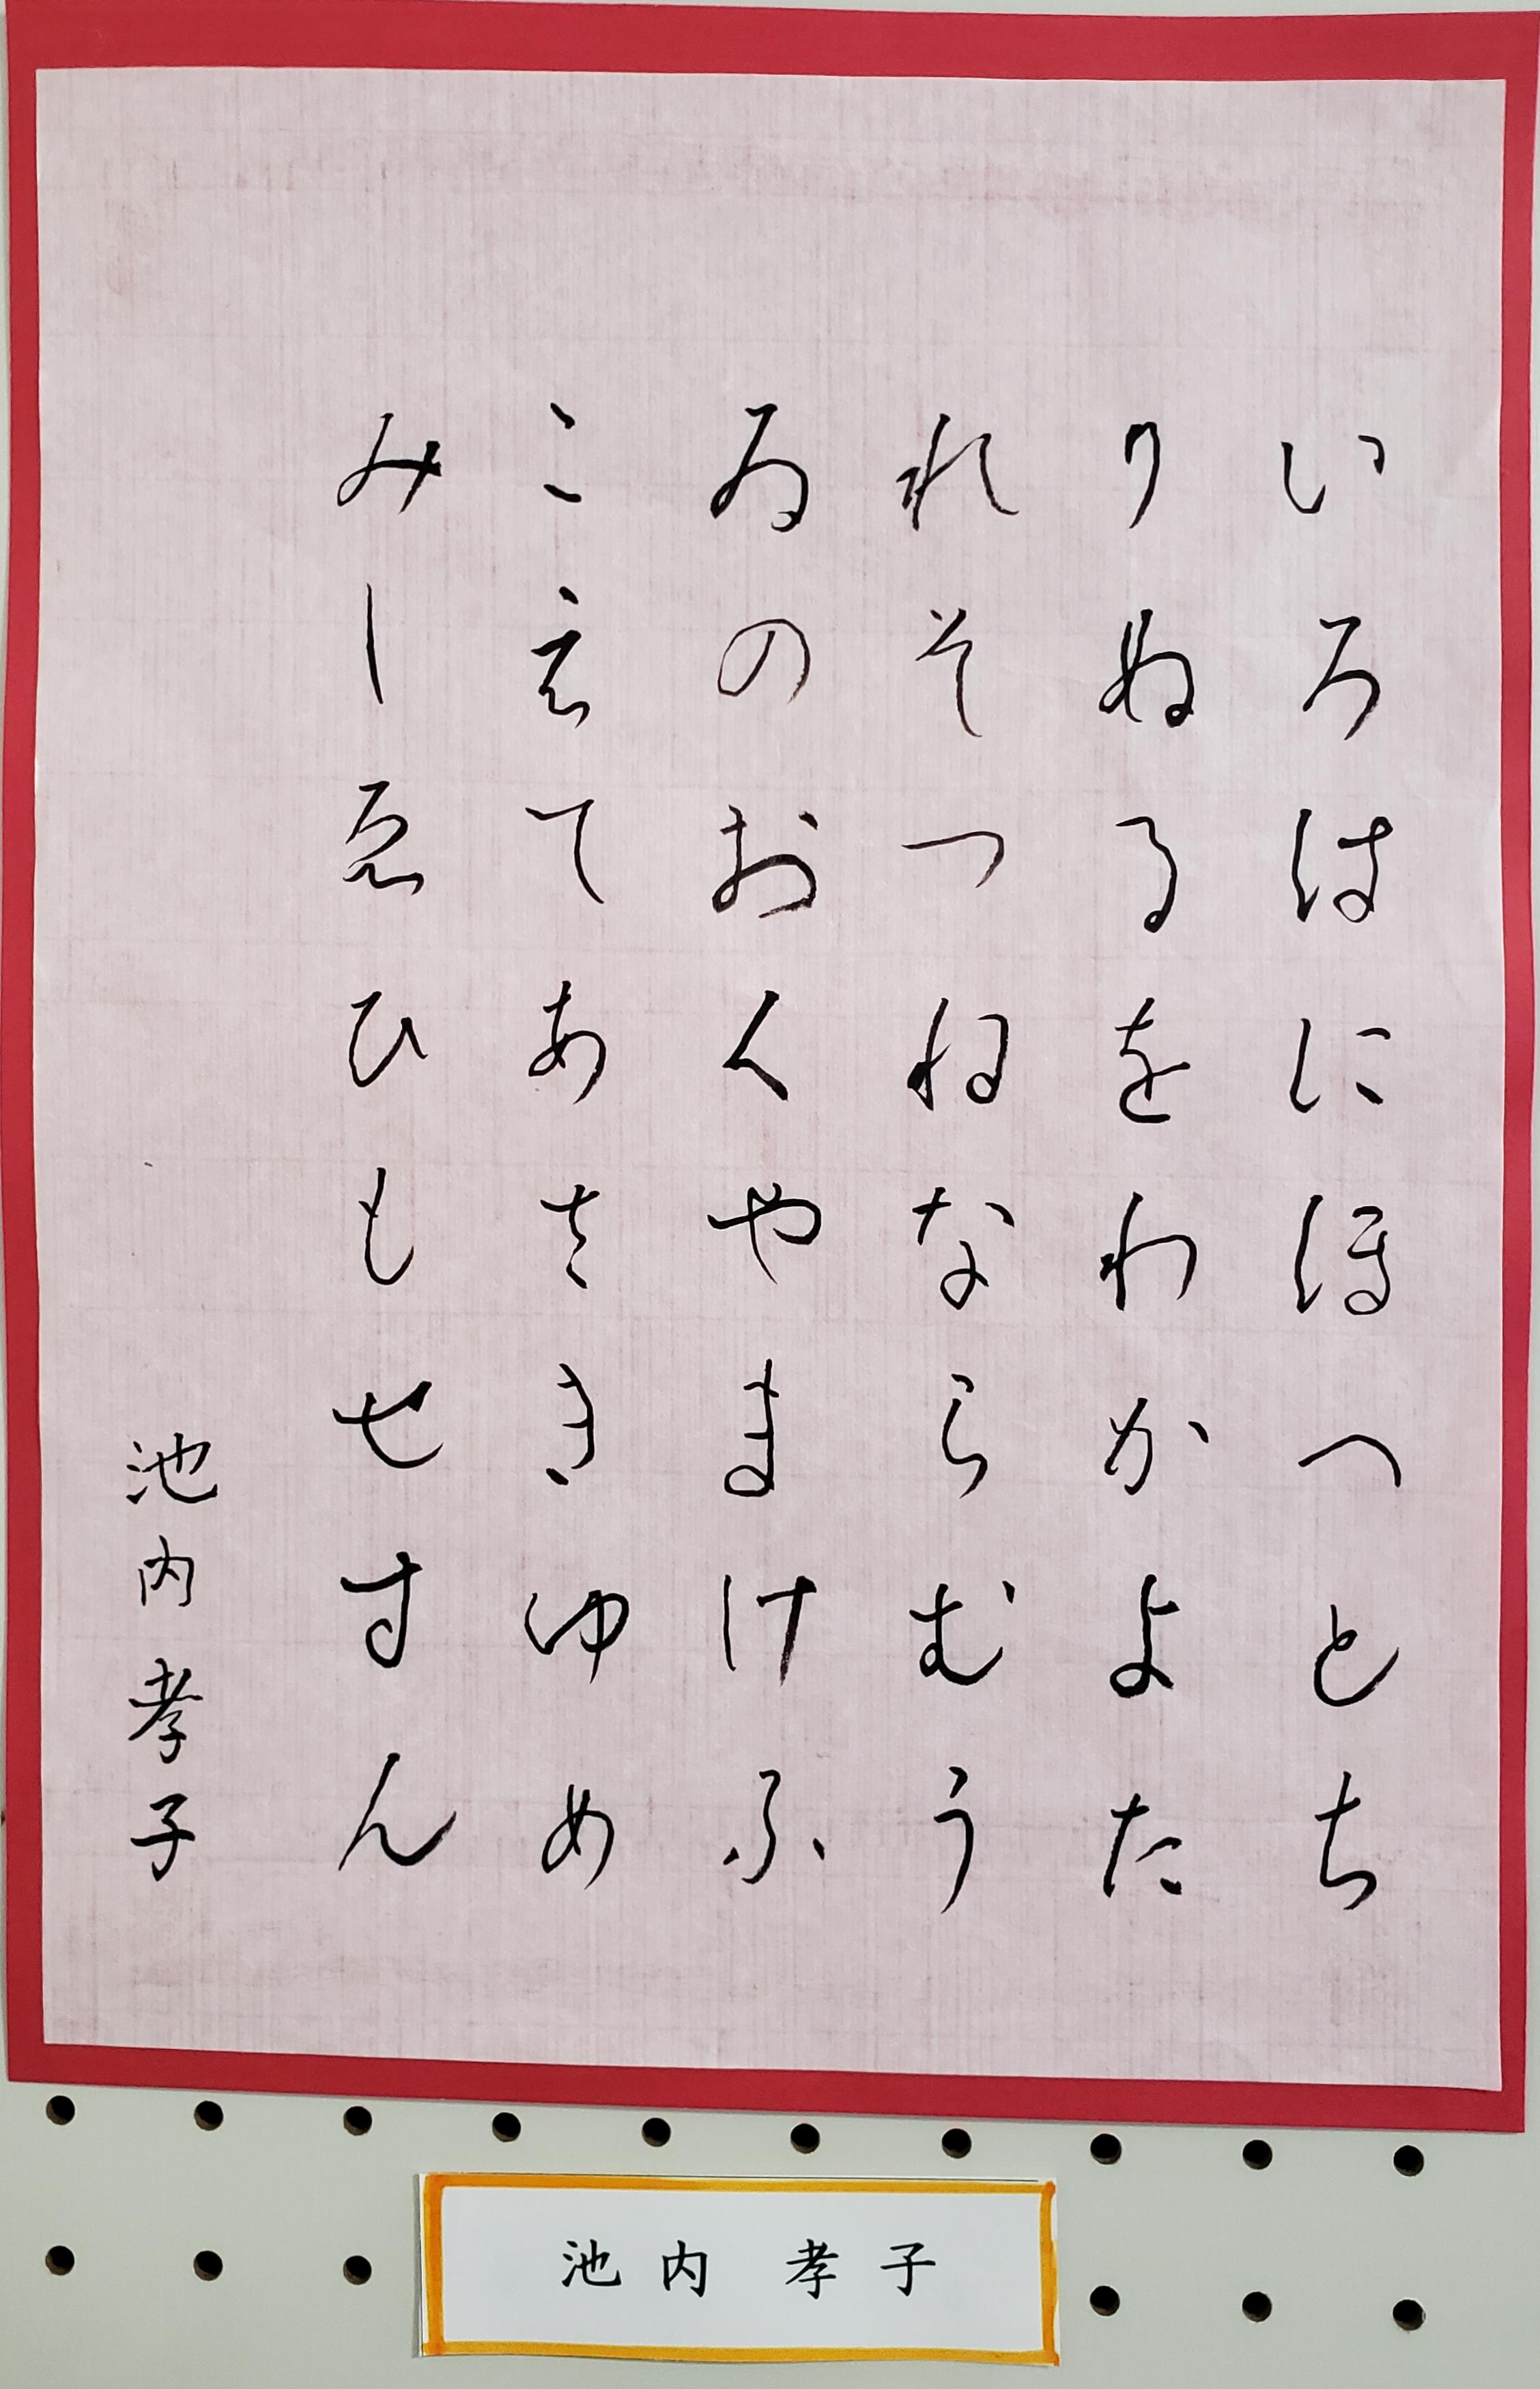 いろはにほへとち
りぬるをわかよた
れそつねならむう
ゐのおくやまけふ
こえてあさきゆめ
みしゑひもせすん
池内孝子
池内 孝子